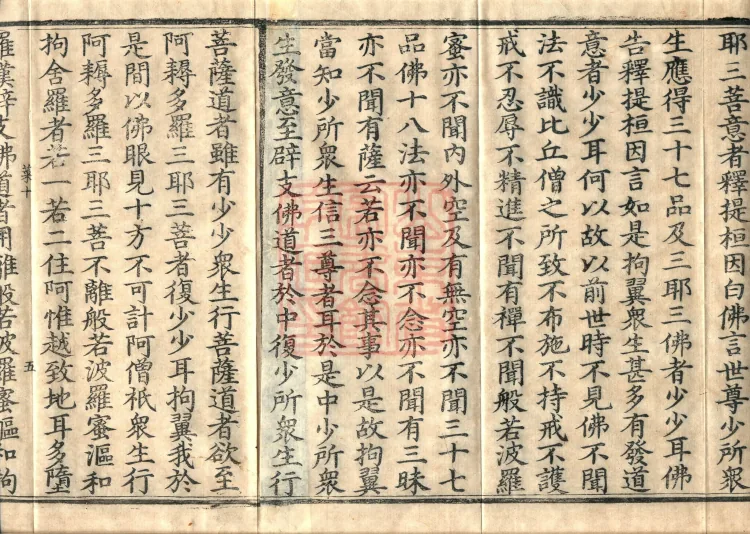 耶三菩意者釋提桓因白佛言世尊少所衆
生應得三十七品及三耶三佛者少少耳佛
告釋提桓因言如是拘翼衆生甚多有發道
意者少少耳何以故以前世時不見佛不聞
法不識比丘僧之所致不布施不持戒不護
戒不忍辱不精進不聞有禪不聞般若波羅
蜜亦不聞內外空及有無空亦不聞三十七
品佛十八法亦不聞亦不念亦不聞有三昧
亦不聞有薩云若亦不念其事以是故拘翼
當知少所衆生信三尊者耳於是中少所衆
生發意至辟支佛道者於中復少所衆生行
菩薩道者雖有少少衆生行菩薩道者欲至
阿耨多羅三耶三菩者復少少耳拘翼我於
是間以佛眼見十方不可計阿僧祇衆生行
阿耨多羅三耶三菩不離般若波羅蜜漚和
拘舍羅者若一若二住阿惟越致地耳多墮
菜十 五
羅漢辟支佛道者用離般若波羅蜜漚和拘